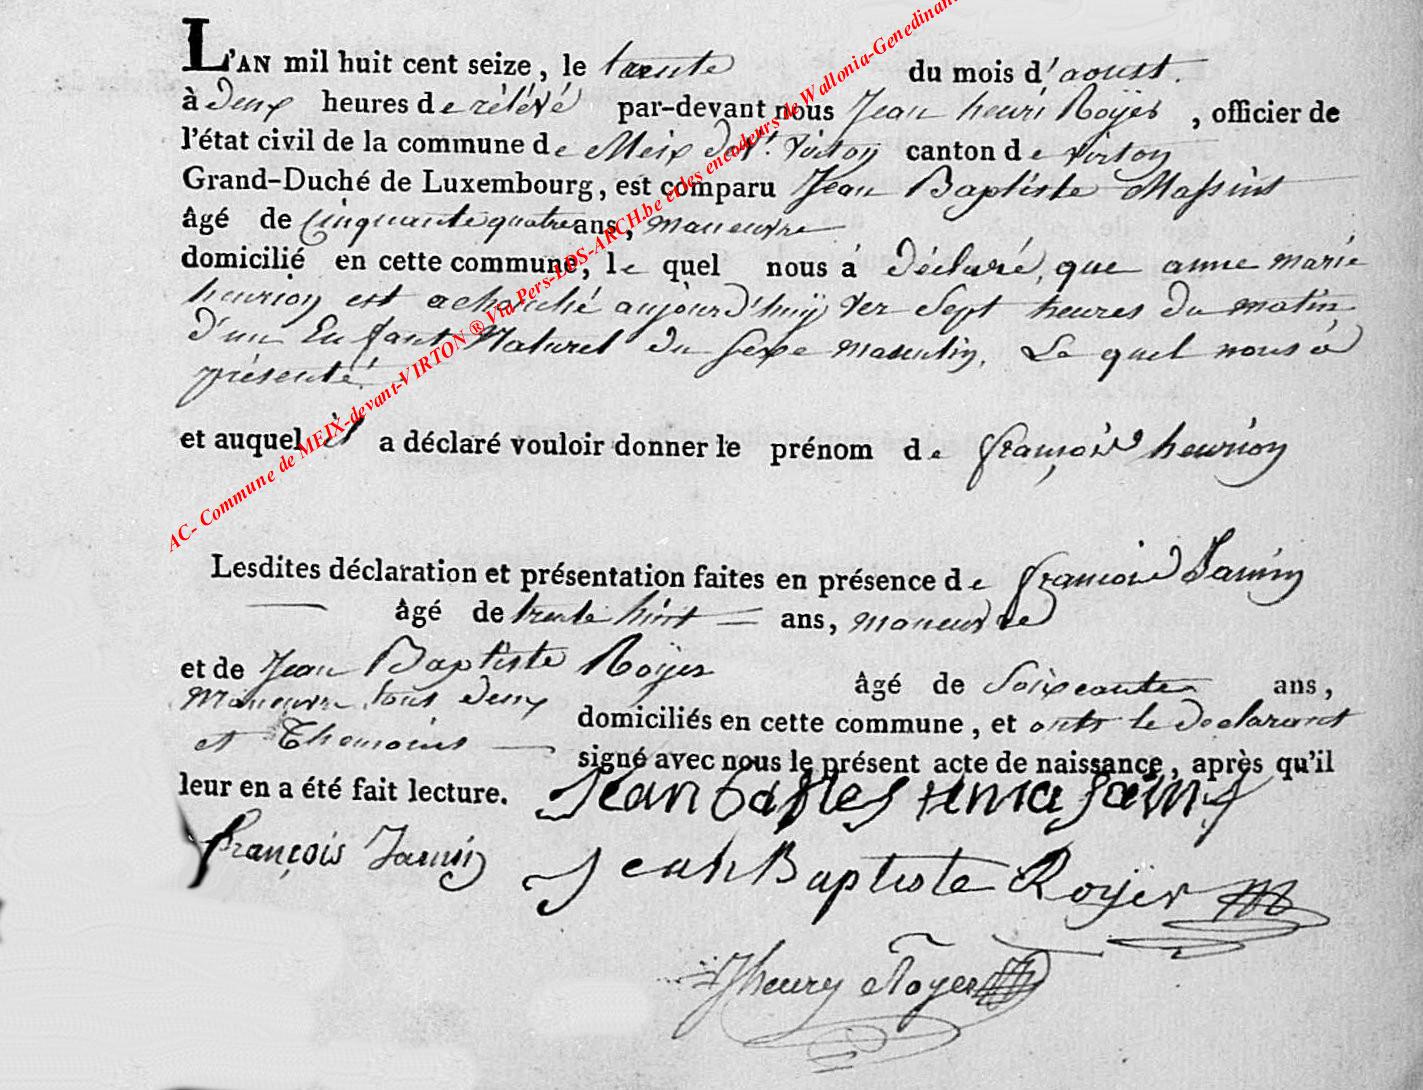 L'AN mil huit cent seize, le trente du mois d'aoust.
à Deux heures de rélévé par-devant nous Jean henri Roÿer, officier de
l'état civil de la commune de Meix devt. Virton canton de virton
Grand-Duché de Luxembourg, est comparu Jean Baptiste Massint
âgé de Cinquante quatre ans, maneuvre
domicilié en cette commune, le quel nous à Déclaré, que anne marie
henrion est achouché aujourd'huÿ ver Sept heures du matin
d'un Enfant Naturel du Sexe masculin, Le quel nous à
présenté.
et auquel il a déclaré vouloir donner le prénom de françois henrion
Lesdites déclaration et présentation faites en présence de francois Jamin
âgé de trente hüit ans, maneuvre
et de Jean Baptiste Roÿer âgé de Soixcante ans,
Maneuvre tous deux domiciliés en cette commune, et onts le declarant
et Themoins signé avec nous le présent acte de naissance, après qu'il
leur en a été fait lecture. Jean
françois Jamin Jean Baptiste Roÿer
Jhenry Royer
AC- Commune de MEIX-devant-VIRTON ® Via Pers-LDS-ARCH.be et les encodeurs de Wallonia-Genedinant